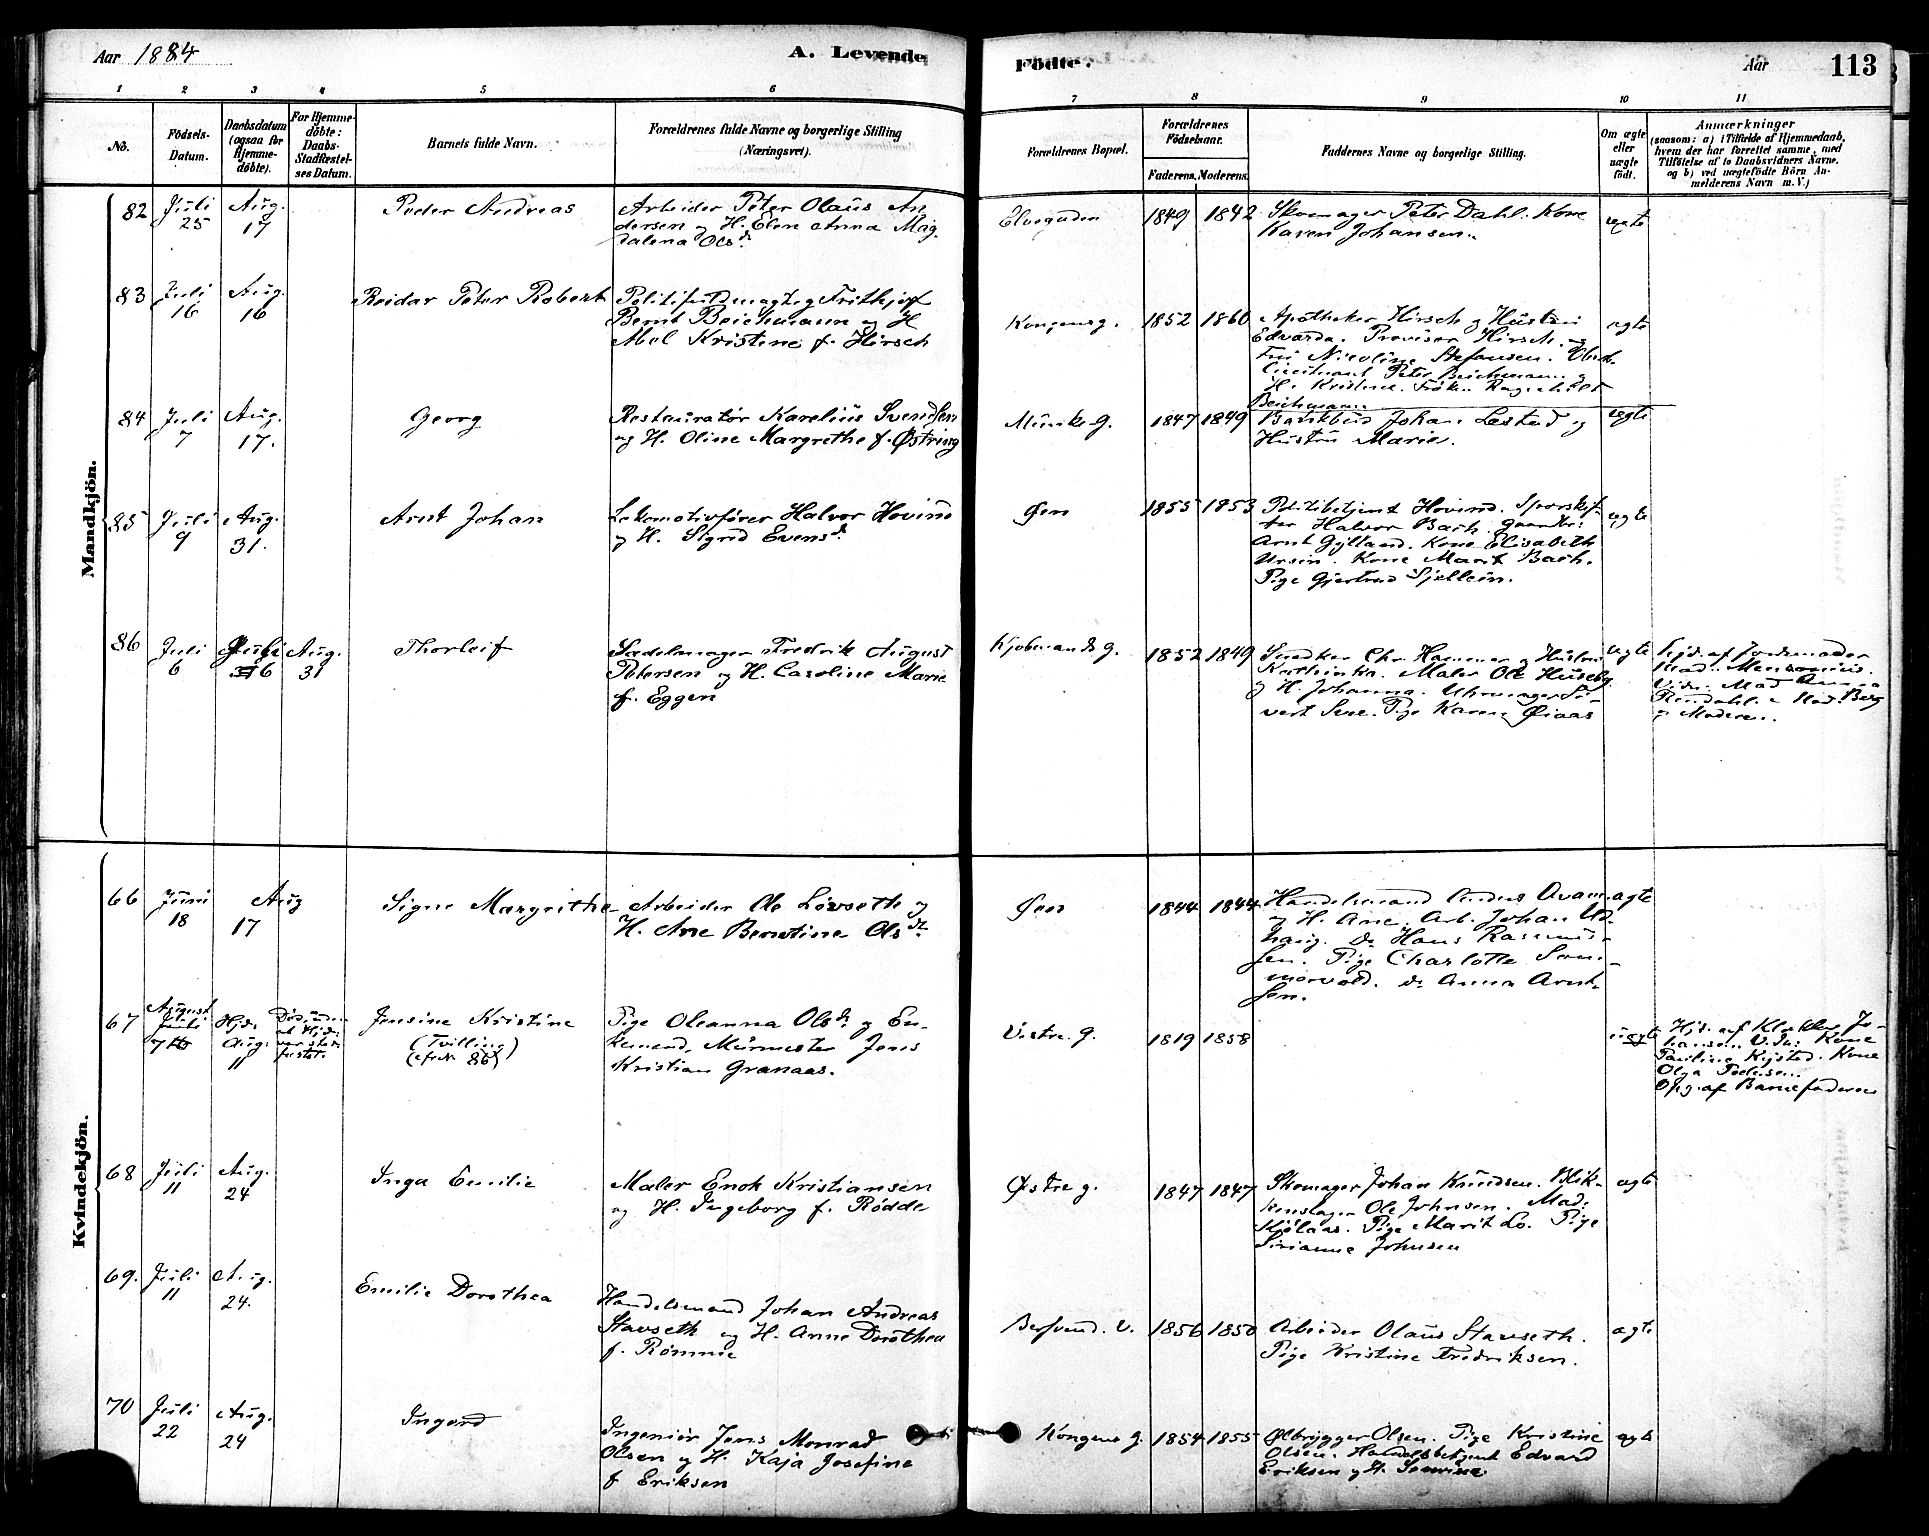 Aar 1884
A. Levende
Födte.
Aar
113
1 2 3 4 5 6 7 8 9 10 11
No.
Födsels-
Datum.
Daabsdatum
(ogsaa for
Hjemme-
döbte).
For Hjemme-
döbte:
Daabs-
Stadfæstel-
ses Datum.
Barnets fulde Navn.
Forældrenes fulde Navne og borgerlige Stilling
(Næringsvei).
Forældrenes Bopæl.
Forældrenes
Födselsaar.
Faderens. Moderens.
Faddernes Navne og borgerlige Stilling.
Om ægte
eller
uægte
födt.
Anmærkninger
(saasom: a) i Tilfælde af Hjemmedaab,
hvem der har forrettet samme, med
Tilföielse af to Daabsvidners Navne,
og b) ved uægtefödte Börn An-
melderens Navn m. V.)
Mandkjön.
82 Juli 25 Aug. 17 Peder Andreas
Arbeider Peter Olaus An
dersen og H. Elen Anna Mag
dalena Olsd.
1849 1842
Skomager Peter Dahl. Kone
Karen Johansen.
ægte
83 Juli 16 Aug. 16 Reidar Peter Robert
Politifuldmægtig Frithjof
Bernt Beichmann og H
Kristine f. Hirsch
Kongensg. 1852 1860
Apotheker Hirsch og Hustru
Edvarda. Provisor Hirsch. og
Fru Nicoline Stefansen.
Peter Beichmann og
H. Kristine. Frøken Ragnhild
Beichmann.
ægte
84 Juli 7 Aug. 17. Georg
Restauratør Karelius Svendsen
og H. Oline Margrethe f. Østring
Munkeg. 1847 1849
Bankbud Johan Lestad og
Hustru Marie.
ægte
85 Juli 9 Aug. 31. Arnt Johan
Lokomotivfører Halvor Hovind
og H. Sigrid Evensd.
Øen 1855 1853
Politibetjent Hovind. Sporskif-
ter Halvor Bach. Gaardbr:
Arnt Gylland. Kone Elisabeth
Ursin. Kone Marit Bach.
Pige Gjertrud
ægte
86 Juli 6 Juli 6 Aug. 31 Thorleif
Sadelmager Fredrik August
Petersen og H. Caroline Marie
f. Eggen
Kjøbmandsg. 1852 1849
Snedker Chr. Hammer og Hustru
Kathinka. Maler Ole Huseby
og H. Johanna. Uhrmager Si-
vert Pige Karen Øiaas
ægte
Hjd. af Jordemoder
Mad.
Vidn: Mad Anna
Rendahl. Mad. Berg
og Moderen.
Kvindekjön.
66 Juni 18 Aug 17 Signe Margrithe
Arbeider Ole Løvseth og
H. Ane Berntine Olsdr.
Øen 1844 1844
Handelsmand Anders
og H. Ane. Arb. Johan Ud-
haug. do Hans Rasmus-
sen. Pige Charlotte Søm-
morvold. do Anna Arnt-
sen.
ægte
67 August 7 Hjd. Aug. 11
Død, uden
at Hjd.
var stad-
fæstet.
Jensine Kristine
(Tvilling)
Pige Oleanna Olsdr. og En-
kemand, Murmester Jens
Kristian Granaas.
Vestre g. 1819 1858
uægte
Hjd. af Klokker Jo-
hansen Vidn: Kone
Pauline Kone
Olga Pedersen.
Opg. af Barnefaderen
68 Juli 11 Aug. 24 Inga Emilie
Maler Enok Kristiansen
og H. Ingeborg f. Rødde
Østre g. 1847 1847
Skomager Johan Knudsen. Blik-
kenslager Ole Johnsen. Mad.
Kjølaas. Pige Marit Lo. Pige
Sirianne Johnsen
ægte
69. Juli 11 Aug. 24. Emilie Dorothea
Handelsmand Johan Andreas
Stavseth og H. Anne Dorothea
f. Rømme
1856 1850
Arbeider Olaus Stavseth.
Pige Kristine Fredriksen.
ægte
70 Juli 22 Aug. 24 Ingerd
Ingeniør Jens Monrad
Olsen og H. Kaja Josefine
f Eriksen
Kongens g. 1854 1855
Ølbrygger Olsen. Pige Kristine
Olsen. Handelsbetjent Edvard
Eriksen og H.
ægte